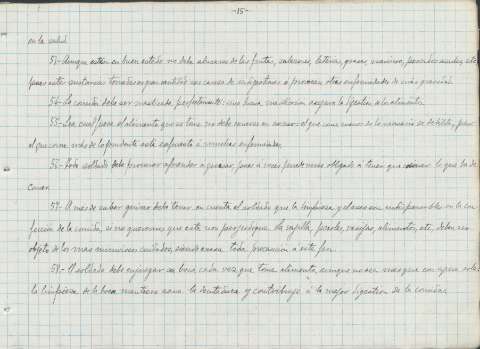 -15-
en la salud.
53.- Aunque estén en buen estado no debe abusarse de las frutas, salazones, latería, grasas, mariscos, pescados azules, etc
pues estas sustancias tomadas en gran cantidad son causa de indigestiones o provocan otras enfermedades de más gravedad.
54.- La comida debe ser masticada perfectamente: una buena masticación asegura la digestión de los alimentos.
55.- Sea cual fuere el alimento que se tome no debe comerse en exceso: el que come menos de lo necesario se debilita, pero
el que come más de lo prudente está expuesto a muchas enfermedades.
56.- Todo soldado debe procurar aprender a guisar, pues a veces puede verse obligado a tener que
comer.
57.- A mas de saber guisar debe tener en cuenta el soldado que la limpieza y el aseo son indispensables en la con-
fección de la comida, si no queremos que esta nos perjudique. La vajilla, peroles, vasijas, alimentos, etc, deben ser
objeto de los mas minuciosos cuidados, siendo escasa toda precaución a este fin.
58.- El soldado debe enjuagar su boca cada vez que tome alimento, aunque no sea mas que con agua sola:
la limpieza de la boca mantiene sana la dentadura y contribuye á la mejor digestión de la comida.